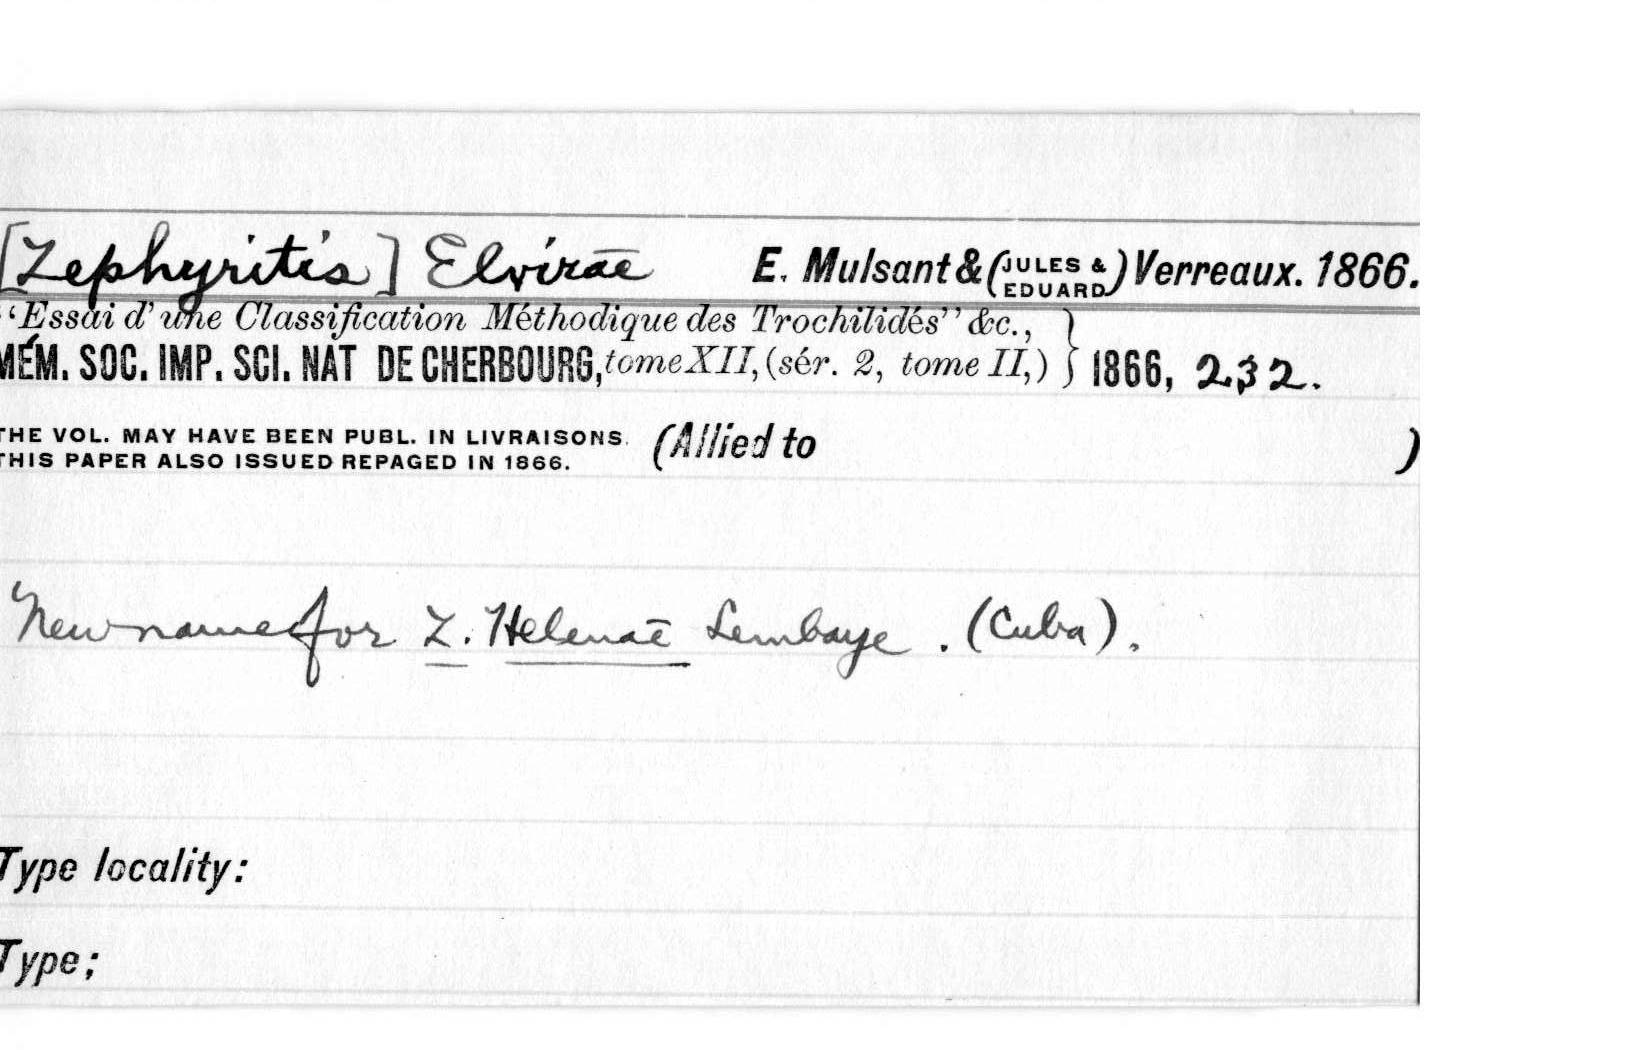 [Zephyritis] Elvirae E. Mulsant & (JULES & EDUARD) Verreaux. 1866.
"Essai d'une Classification Méthodique des Trochilidés" &c.,
MÉM. SOC. IMP. SCI. NAT DE CHERBOURG, tome XII, (sér. 2, tome II,) } 1866, 232.
THE VOL. MAY HAVE BEEN PUBL. IN LIVRAISONS. (Allied to )
THIS PAPER ALSO ISSUED REPAGED IN 1866.
New name for Z. Helenae Lembaye. (Cuba).
Type locality:
Type;